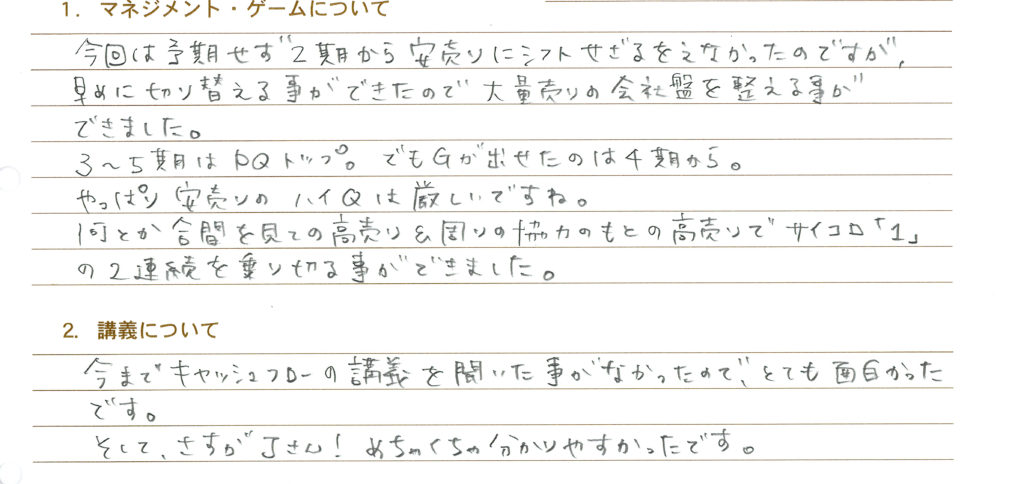 1. マネジメント・ゲームについて
今回は予期せず2期から安売りにシフトせざるをえなかったのですが、
早めに切り替える事ができたので大量売りの会社盤を整える事が
できました。
3～5期はPQトップ。でもGが出せたのは4期から。
やっぱり安売りのハイQは厳しいですね。
何とか合間を見ての高売り&周りの協力のもとの高売りでサイコロ「1」
の2連続を乗り切る事ができました。
2. 講義について
今までキャッシュフローの講義を聞いた事がなかったので、とても面白かった
です。
そして、さすがJさん!めちゃくちゃ分かりやすかったです。